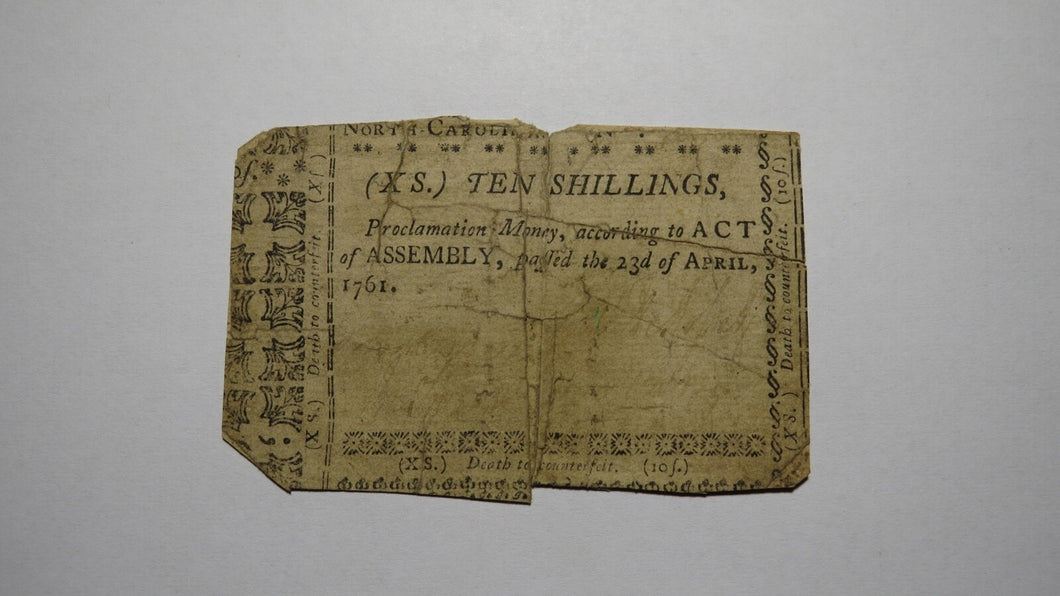 NORTH-CAROLIN
(XS.) TEN SHILLINGS,
Proclamation Money, according to ACT
of ASSEMBLY, paſſed the 23d of APRIL,
1761.
(XS.) Death to counterfeit. (10ſ.)
(XS.) Death to counterfeit. (Xſ)
(XS.) Death to counterfeit. (10ſ.)
0ſ.